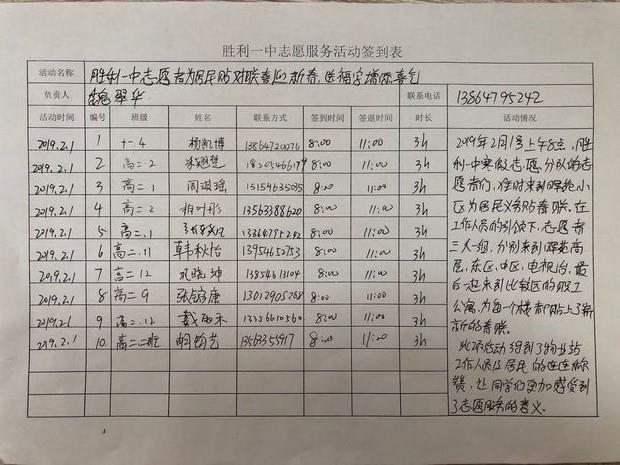 胜利一中志愿服务活动签到表
活动名称 胜利一中志愿者为居民贴对联喜迎新春,送福字增添喜气
负责人 魏翠华 联系电话 13864795242
活动时间 编号 班级 姓名 联系方式 签到时间 签退时间 时长 活动情况
2019.2.1 1 十一.4 杨凯博 13864720076 8:00 11:00 3h
2019.2.1 2 高二.2 18205466179 8:00 11:00 3h
2019.2.1 3 高二.1 周琪瑶 15154635035 8:00 11:00 3h
2019.2.1 4 高二.2 相叶彤 13563388620 8:00 11:00 3h
2019.2.1 5 高二.1 13864795242 8:00 11:00 3h
2019.2.1 6 高二.11 韩秋怡 13954652753 8:00 11:00 3h
2019.2.1 7 高二12 巩晓坤 13854613104 8:00 11:00 3h
2019.2.1 8 高二9 张铭康 13012905268 8:00 11:00 3h
2019.2.1 9 高二.12 戴雨禾 13356610560 8:00 11:00 3h
2019.2.1 10 高二二班 明钧艺 13563355917 8:00 11:00 3h
2019年2月1号上午8点,胜
利一中寒假志愿分队的志
愿者们,准时来到辉苑小
区为居民义务贴春联。在
工作人员的引领下,志愿者
三人一组,分别来到辉苑高
层,东区,中区,电视台,最
后一起来到比较区的职工
公寓,为每一个楼都贴上了崭
新的春联。
此项活动得到了物业站
工作人员及居民的连连称
赞,让同学们更加感受到
了志愿服务的意义.